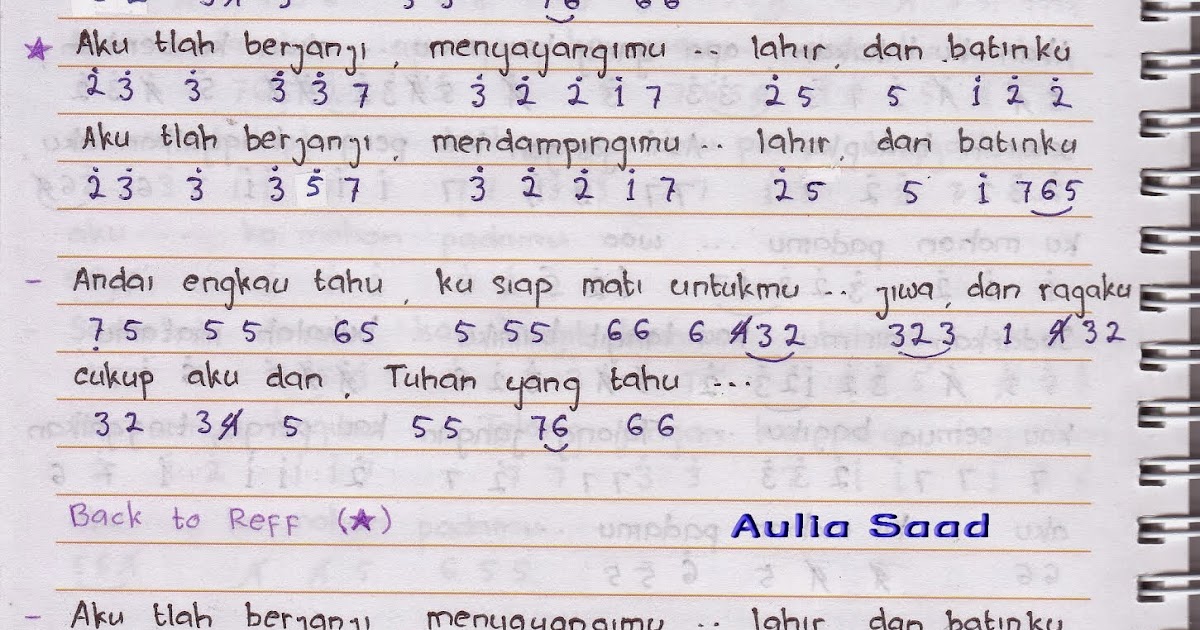 ★ Aku tlah berjanji, menyayangimu .. lahir, dan batinku
2̇ 3̇ 3̇ 3̇ 3̇ 7 3̇ 2̇ 2̇ 1̇ 7 2̇ 5 5 1̇ 2̇ 2̇
Aku tlah berjanji, mendampingimu .. lahir, dan batinku
2̇ 3̇ 3̇ 3̇ 5̇ 7 3̇ 2̇ 2̇ 1̇ 7 2̇ 5 5 1̇ 765
- Andai engkau tahu, ku siap mati untukmu .. jiwa, dan ragaku
7̣ 5 5 5 65 5 55 66 6 4̸32 323 1 4̸32
cukup aku dan, Tuhan yang tahu ...
32 34̸ 5 55 76 66
Back to Reff (★)
Aulia Saad
- Aku tlah berjanji menyayangimu .. lahir, dan batinku